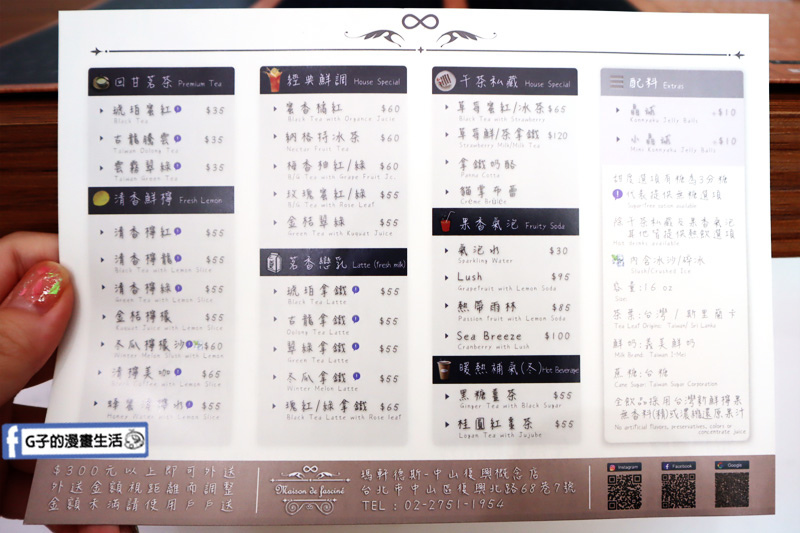 回甘茗茶 Premium Tea
琥珀蜜紅 $35
Black Tea
古龍騰雲 $35
Taiwan Oolong Tea
雲霧翠綠 $35
Taiwan Green Tea
清香鮮檸 Fresh Lemon
清香檸紅 $55
Black Tea with Lemon Slice
清香檸龍 $55
Oolong Tea with Lemon Slice
清香檸綠 $55
Green Tea with Lemon Slice
金桔檸檬 $55
Kumquat Juice with Lemon Slice
冬瓜檸檬沙 $60
Winter Melon Slush with Lemon
清檸美咖 $65
Black Coffee with Lemon Slice
蜂蜜檸水 $55
Honey Water with Lemon Slice
經典鮮調 House Special
蜜香橘紅 $60
Black Tea with Organce Juice
納格特冰茶 $60
Nectar Fruit Tea
柚香柚紅/綠 $60
B/G Tea with Grape Fruit Jc.
玫瑰蜜紅/綠 $55
B/G Tea with Rose Leaf
金桔翠綠 $55
Green Tea with Kuquat Juice
茗香戀乳 Latte (fresh milk)
琥珀拿鐵 $55
Black Tea Latte
古龍拿鐵 $55
Oolong Tea Latte
翠綠拿鐵 $55
Green Tea Latte
冬瓜拿鐵 $55
Winter Melon Latte
瑰紅/綠拿鐵 $65
Black Tea Latte with Rose Leaf
干茶私藏 House Special
草莓蜜紅/冰茶 $65
Black Tea with Strawberry
草莓鮮/茶拿鐵 $120
Strawberry Milk/Milk Tea
拿鐵奶酪
Panna Cotta
貓拿布蕾
Crème Brûlée
果香氣泡 Fruity Soda
氣泡水 $30
Sparkling Water
Lush $95
Grapefruit with Lemon Soda
熱帶雨林 $85
Passion fruit with Lemon Soda
Sea Breeze $100
Cranberry with Lush
暖熱補氣(冬) Hot Beverage
黑糖薑茶 $55
Ginger Tea with Black Sugar
桂圓紅棗茶 $55
Logan Tea with Jujube
配料 Extras
晶球 +$10
Konnyaku Jelly Balls
小晶球 +$10
Mini Konnyaku Jelly Balls
甜度選項有糖為3分糖
代表提供無糖選項
Sugar free option available
除干茶私藏與果香氣泡
其他皆提供熱飲選項
Hot drinks available
內含冰沙/碎冰
Slush/Crushed Ice
容量:16 oz
Size
茶葉:台灣/斯里蘭卡
Tea Leaf Origins: Taiwan/ Sri Lanka
鮮奶:義美鮮奶
Milk Brand: Taiwan I-Mei
蔗糖:台糖
Cane Sugar: Taiwan Sugar Corporation
全飲品採用台灣新鮮檸果
無香料(精)或濃縮還原果汁
No artificial flavors, preservatives, colors or
concentrate juice
G子的漫畫生活
$300元以上即可外送
外送金額視距離而調整
金額未滿請使用戶戶送
Maison de fasciné
瑪軒德斯-中山復興概念店
台北市中山區復興北路68巷7號
TEL:02-2751-1954
Instagram
Facebook
Google